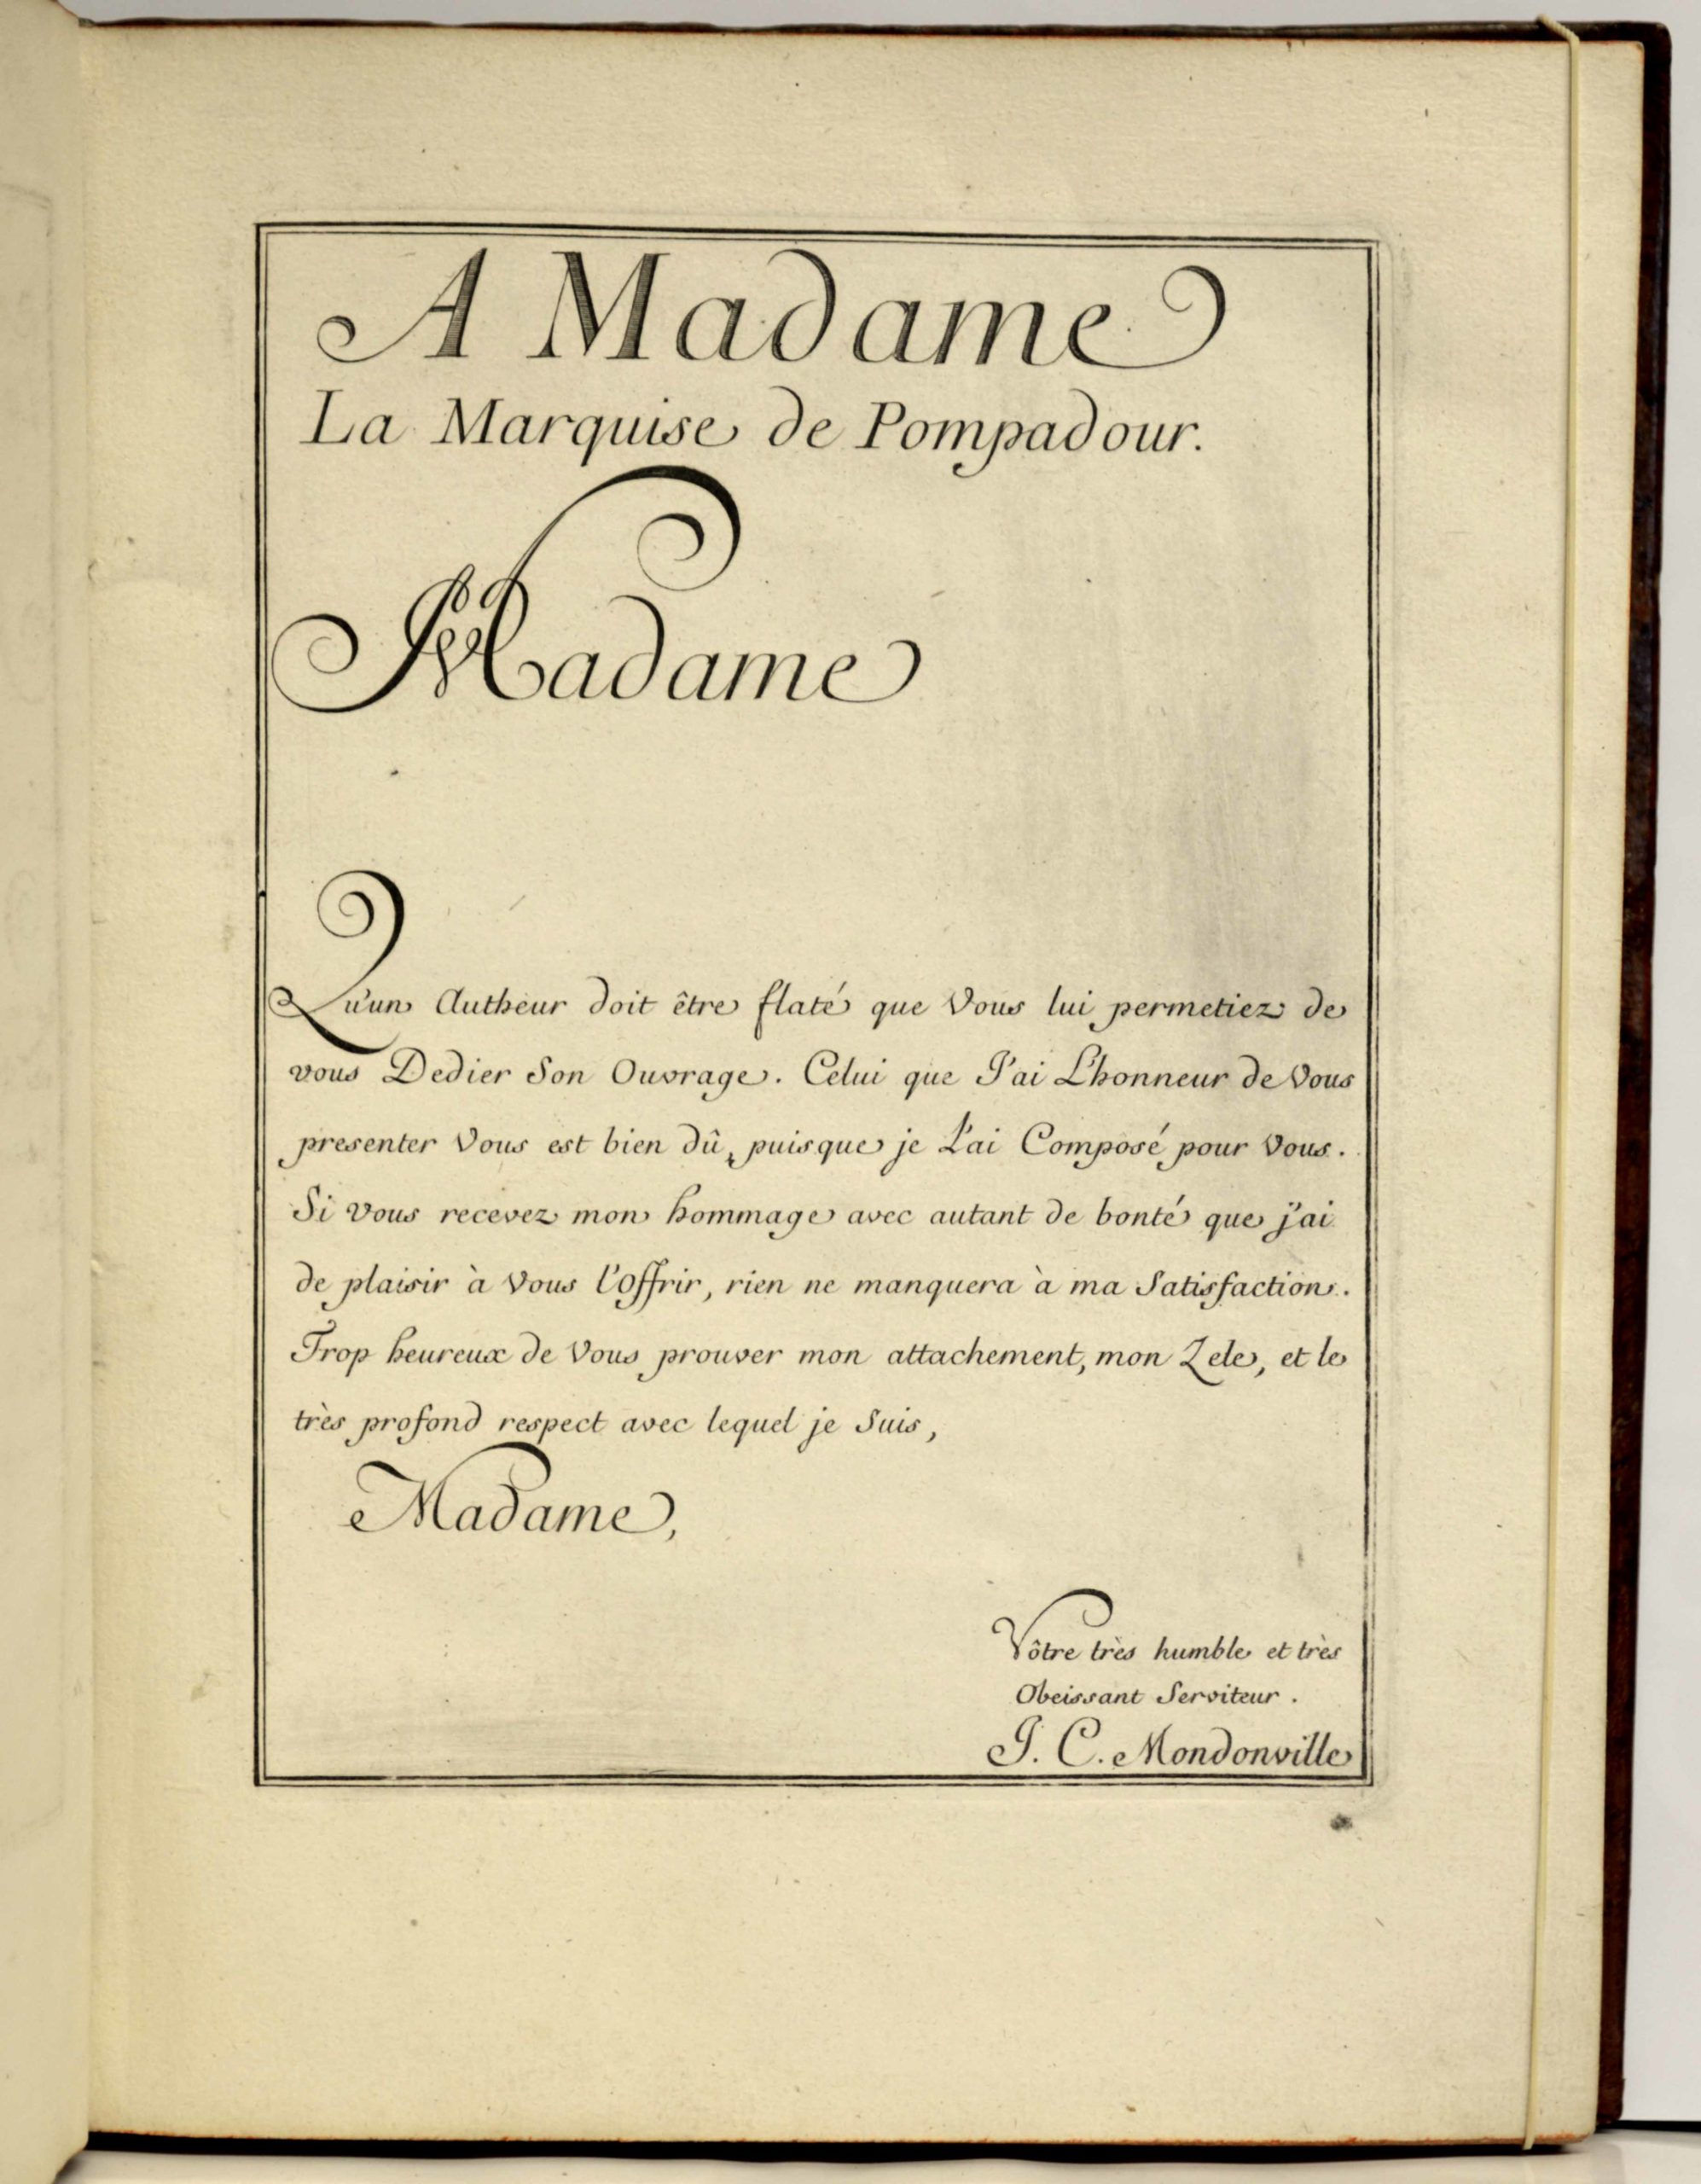 A Madame
La Marquise de Pompadour.
Madame
Qu'un Autheur doit être flaté que Vous lui permetiez de
vous Dedier Son Ouvrage. Celui que J'ai L'honneur de Vous
presenter Vous est bien dû, puisque je L'ai Composé pour Vous.
Si vous recevez mon hommage avec autant de bonté que j'ai
de plaisir à Vous l'Offrir, rien ne manquera à ma Satisfaction.
Trop heureux de Vous prouver mon attachement, mon Zele, et le
très profond respect avec lequel je Suis,
Madame,
Vôtre très humble et très
Obeissant Serviteur.
J. C. Mondonville